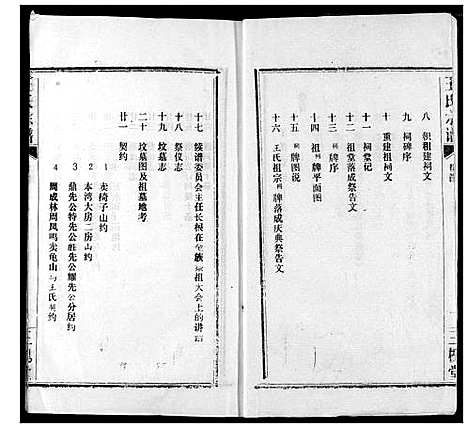 王氏宗谱
八 积租建祠文
九 祠碑序
十 重建祠文
十一 祠堂记
十二 祖堂落成祭告文
十三 祠牌序
十四 祖祠牌平面图
十五 祠牌图说
十六 王氏祖宗祠牌落成庆典祭告文
三槐堂
十七 续谱委员会主任长树在全族祭祖大会上的讲话
十八 祭仪志
十九 坟墓志
二十 坟墓图及祖墓地考
廿一 契约
1 卖椅子山约
2 本湾大房二房山约
3 鼎先公特先公胜先公耀先公分居约
4 周成林周凤鸣卖龟山与王氏祠约
王氏宗谱
三槐堂